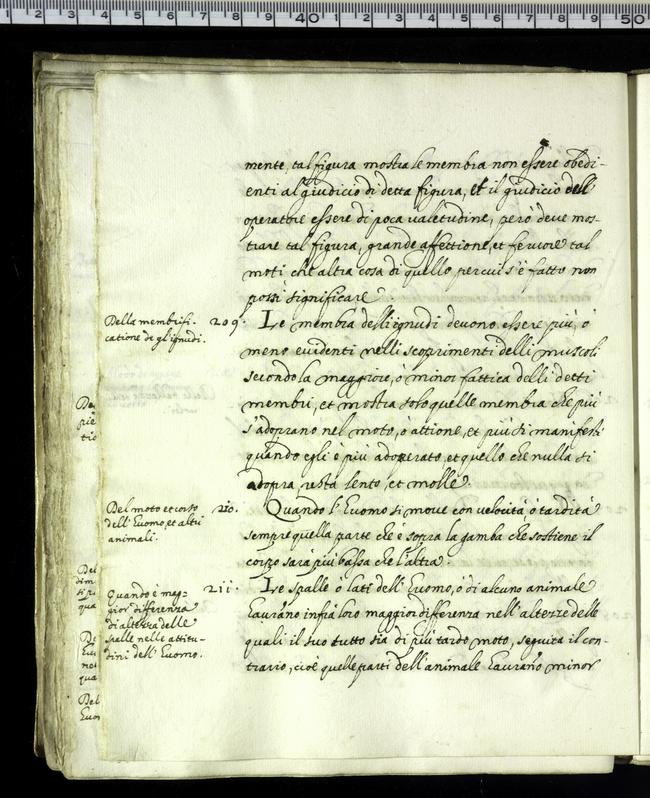 mente, tal figura mostra le membra non essere obedi-
enti al giudicio di detta figura, et il giudicio dell'
operatore essere di poca valetudine, però deve mos-
trare tal figura, grande affettione, et fervore tal
moti che altra cosa di quello per cui s'è fatto non
possi significare.
Della membrifi-
catione de gl'ignudi.
209. Le membra delli ignudi devono essere più, o
meno evidenti nelli scoprimenti delli muscoli
secondo la maggiore, o minor fattica delli detti
membri, et mostra solo quelle membra che più
s'adoprano nel moto, ò attione, et più si manifesti
quando egli è più adoperato, et quello che nulla si
adopra, resta lento, et molle.
Del moto et corso
dell' huomo, et altri
animali.
210. Quando l' huomo si move con velocità, ò tardità
sempre quella parte che è sopra la gamba che sostiene il
corpo sarà più bassa che l'altra.
Quando è mag-
gior differenza
di altezza delle
spalle nelle attitu-
dini dell' huomo.
211. Le spalle ò lati dell' huomo, ò di alcuno animale
havrano infra loro maggior differenza nell' altezze delle
quali il suo tutto sia di più tardo moto, seguita il con-
trario, cioè quelle parti dell' animale havrano minor
40
50